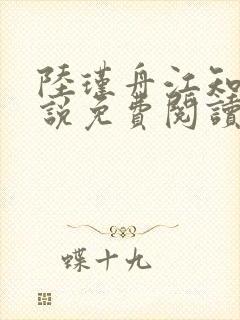 陸瑾舟江知
說免費閱讀
蝶十九